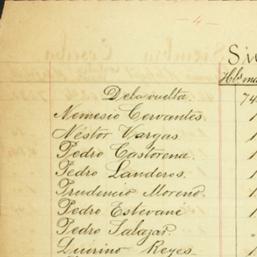 - 4 -
De la vuelta.
Nemesio Cervantes.
Néstor Vargas.
Pedro Castorena.
Pedro Landeros.
Prudencio Moreno.
Pedro Estevané
Pedro Salazar
Quirino Reyes